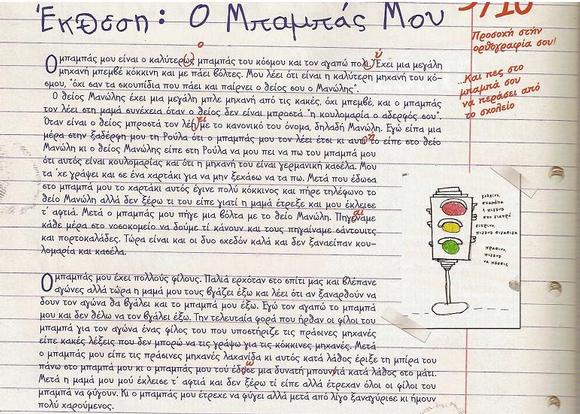 Έκθεση: Ο Μπαμπάς Μου
/10
Προσοχή στην
ορθογραφία σου!
...Και πες στο
μπαμπά σου
να περάσει από
το σχολείο
Ο μπαμπάς μου είναι ο καλύτερως μπαμπάς του κόσμου και τον αγαπώ πολι. Έχει μια μεγάλη
μηχανή μπεμβέ κόκκινη και με πάει βόλτες. Μου λέει ότι είναι η καλύτερη μηχανή του κό-
σμου, 'όχι σαν τα σκουπίδια που πάει και παίρνει ο θείος σου ο Μανώλης'.
Ο θείος Μανώλης έχει μια μεγάλη μπλε μηχανή από τις κακές, όχι μπεμβέ, και ο μπαμπάς
τον λέει στη μαμά συνέχεια όταν ο θείος δεν είναι μπροστά 'η κουλομαρία ο αδερφός σου'.
Όταν είναι ο θείος μπροστά τον λέη με το κανονικό του όνομα, δηλαδή Μανώλη. Εγώ είπα μια
μέρα στην ξαδέρφη μου τη Ρούλα ότι ο μπαμπάς μου τον λέει έτσι κι αυτή το είπε στο θείο
Μανώλη κι ο θείος Μανώλης είπε στη Ρούλα να μου πει να πω του μπαμπά μου
ότι αυτός είναι κουλομαρίας και ότι η μηχανή του είναι γερμανική κασέλα. Μου
τα 'χε γράψει και σε ένα χαρτάκι για να μην ξεχάσω να τα πω. Μετά που έδωσα
στο μπαμπά μου το χαρτάκι αυτός έγινε πολύ κόκκινος και πήρε τηλέφωνο το
θείο Μανώλη αλλά δεν ξέρω τι του είπε γιατί η μαμά έτρεξε και μου έκλεισε
τ' αφτιά. Μετά ο μπαμπάς μου πήγε μια βόλτα με το θείο Μανώλη. Πηγέναμε
κάθε μέρα στο νοσοκομείο να δούμε τί κάνουν και τους πηγαίναμε σάντουιτς
και πορτοκαλάδες. Τώρα είναι και οι δυο σχεδόν καλά και δεν ξαναείπαν κου-
λομαρία και κασέλα.
Ο μπαμπάς μου έχει πολλούς φίλους. Παλιά ερχόταν στο σπίτι μας και βλέπανε
αγώνες αλλά τώρα η μαμά μου τους βγάζει έξω και λέει ότι αν ξαναρθούν να
δουν τον αγώνα θα βγάλει και το μπαμπά μου έξω. Εγώ τον αγαπώ το μπαμπά
μου και δεν θέλω να τον βγάλει έξω. Την τελευταία φορά που ήρθαν οι φίλοι του
μπαμπά για τον αγώνα ένας φίλος του που υποστήριζε τις πράσινες μηχανές
είπε κακές λέξεις που δεν μπορώ να τις γράψω για τις κόκκινες μηχανές. Μετά
ο μπαμπάς μου είπε τις πράσινες μηχανές λαχανίδα κι αυτός κατά λάθος έριξε τη μπίρα του
πάνω στο μπαμπά μου κι ο μπαμπάς μου τού έδοσε μια δυνατή μπουνιά κατά λάθος στο μάτι.
Μετά η μαμά μού έκλεισε τ' αφτιά και δεν ξέρω τί είπε αλλά έτρεχαν όλοι οι φίλοι του
μπαμπά να φύγουν. Κι ο μπαμπάς μου έτρεχε να φύγει αλλά μετά από λίγο ξαναγύρισε κι ήμουν
πολύ χαρούμενος.